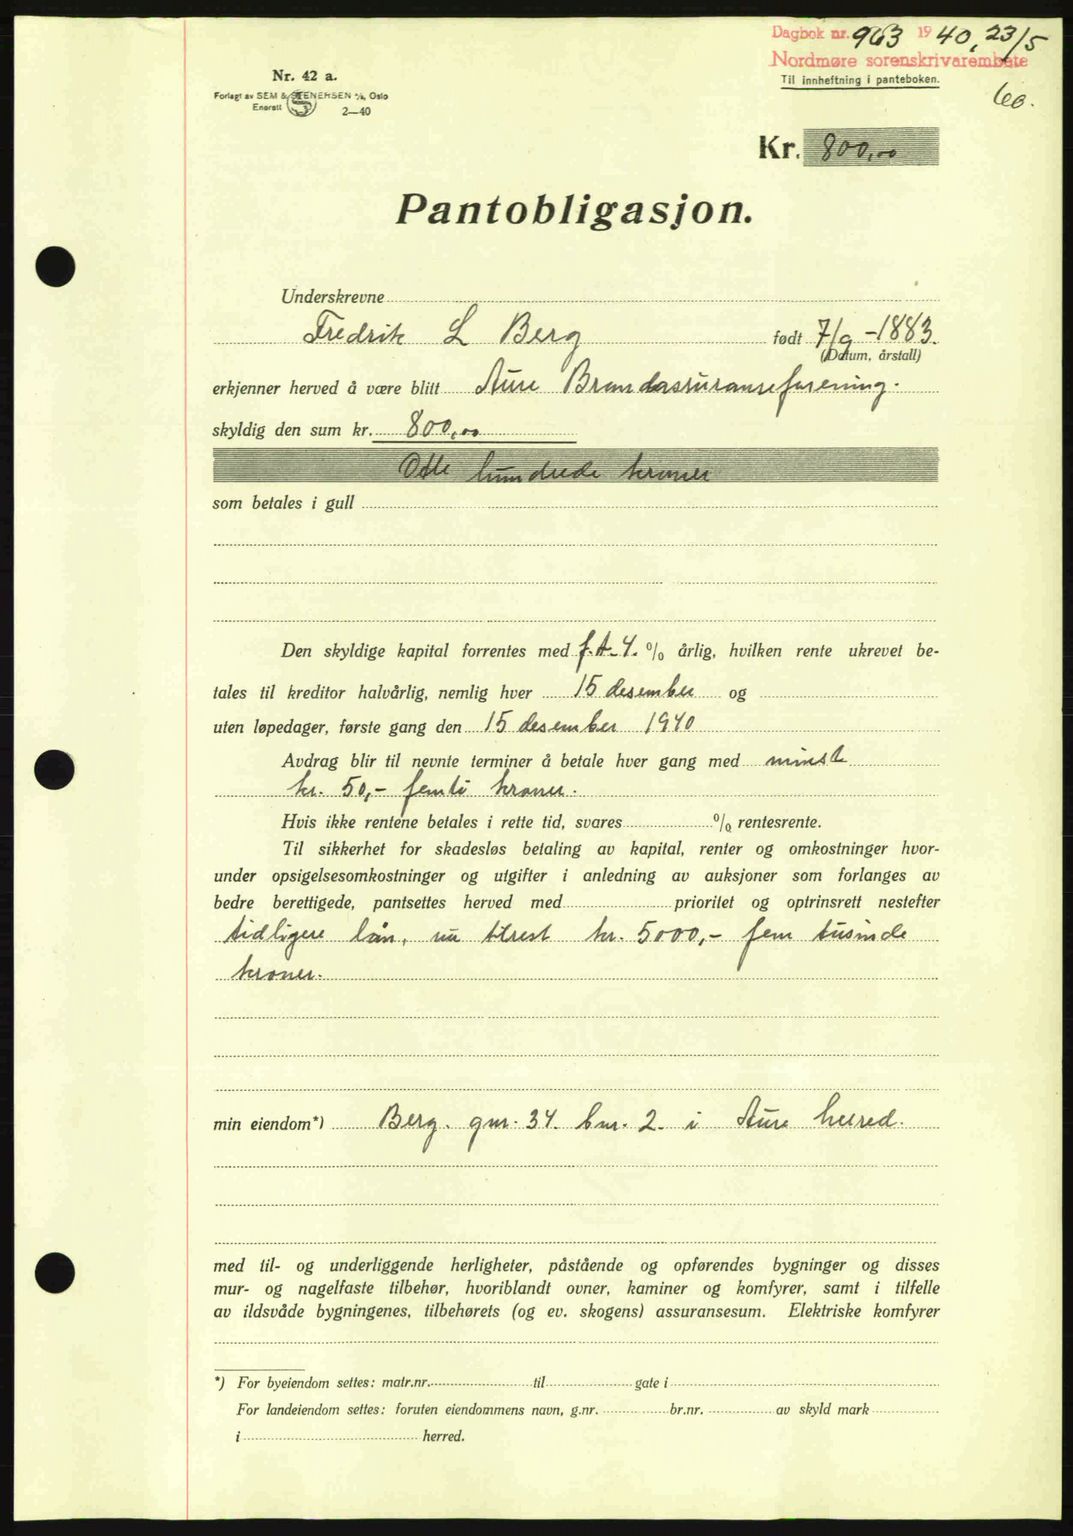 Dagbok nr. 963 1940, 23/5
Nordmøre sorenskrivarembete
Til innheftning i panteboken.
Nr. 42 a.
Forlagt av SEM & STENERSEN A/S, Oslo
Enerett
2—40
Kr. 800,00
Pantobligasjon.
Underskrevne
Fredrik L Berg født 7/9 - 1883.
(Datum, årstall)
erkjenner herved å være blitt Aure Brandassuranseforening.
skyldig den sum kr. 800,00
Otte hundrede kroner
som betales i gull
Den skyldige kapital forrentes med f.t. 4. % årlig, hvilken rente ukrevet be-
tales til kreditor halvårlig, nemlig hver 15 desember og
uten løpedager, første gang den 15 desember 1940
Avdrag blir til nevnte terminer å betale hver gang med minst
kr. 50,- femti kroner.
Hvis ikke rentene betales i rette tid, svares % rentesrente.
Til sikkerhet for skadesløs betaling av kapital, renter og omkostninger hvor-
under opsigelsesomkostninger og utgifter i anledning av auksjoner som forlanges av
bedre berettigede, pantsettes herved med prioritet og optrinsrett nestefter
tidligere lån, nu til rest kr. 5000,- fem tusinde
kroner.
min eiendom*) Berg. gnr. 34. bnr. 2. i Aure herred.
med til- og underliggende herligheter, påstående og opførendes bygninger og disses
mur- og nagelfaste tilbehør, hvoriblandt ovner, kaminer og komfyrer, samt i tilfelle
av ildsvåde bygningenes, tilbehørets (og ev. skogens) assuransesum. Elektriske komfyrer
*) For byeiendom settes: matr.nr. til gate i
For landeiendom settes: foruten eiendommens navn, g.nr. br.nr. av skyld mark
i herred.